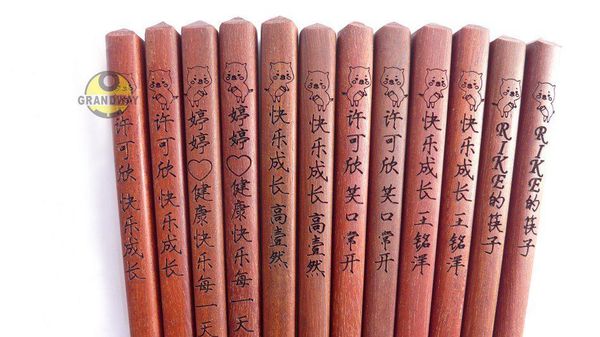 GRANDWAY
许可欣 快乐成长
许可欣 快乐成长
婷婷♡健康快乐每一天
婷婷♡健康快乐每一天
快乐成长 高壹然
快乐成长 高壹然
许可欣 笑口常开
许可欣 笑口常开
快乐成长 王铭洋
快乐成长 王铭洋
RIKE的筷子
RIKE的筷子